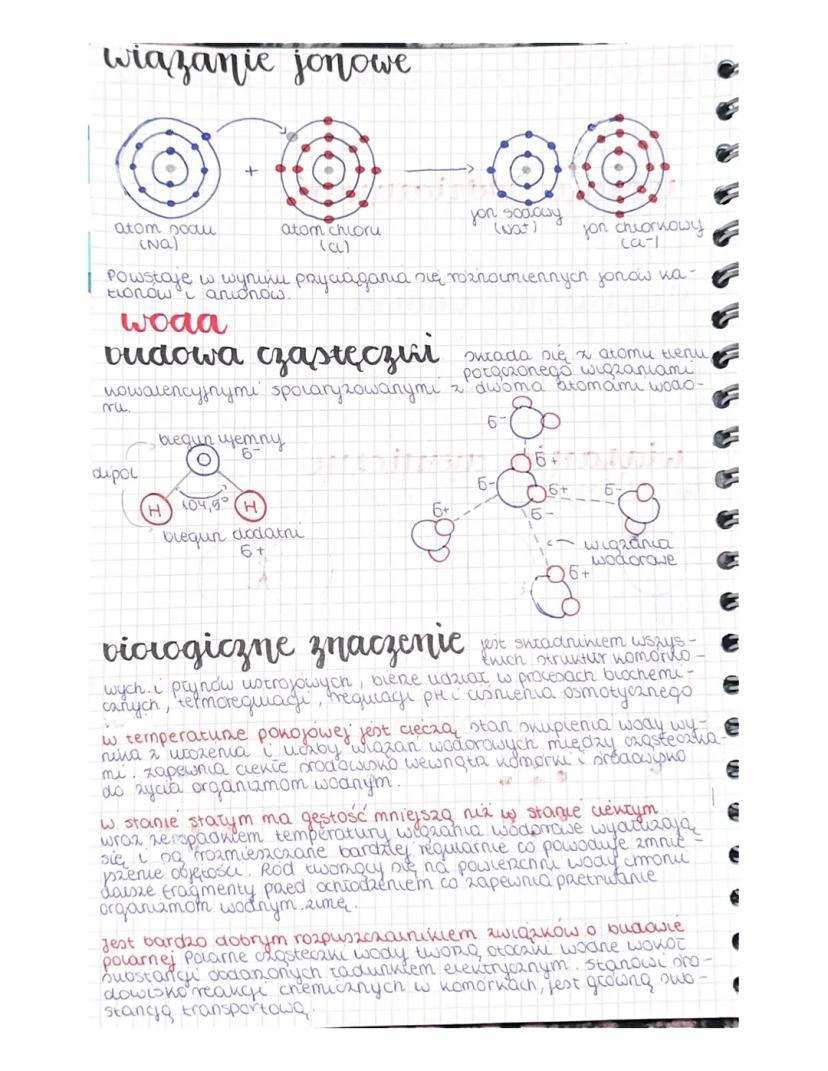 wiązanie jonowe
+
atom sodu
(Na)
atom chloru
(Cl)
jon sodowy
(Na+)
jon chlorkowy
(Cl-)
Powstaje w wyniku przyciągania się różnoimiennych jonów ka-
tionów i anionów.
woda
budowa cząsteczki
składa się z atomu tlenu
połączonego wiązaniami
kowalencyjnymi spolaryzowanymi z dwoma atomami wodo-
ru.
biegun ujemny
б-
dipol
O
H
104,5°
H
biegun dodatni
б+
б-
б+
б-
б+
б-
б+
б-
wiązania
wodorowe
б+
biologiczne znaczenie
jest składnikiem wszys-
tkich struktur komórko-
wych i płynów ustrojowych, bierze udział w procesach biochemi-
cznych, termoregulacji, regulacji pH i ciśnienia osmotycznego
w temperaturze pokojowej jest cieczą stan skupienia wody wy-
nika z ułożenia i liczby wiązań wodorowych między cząsteczka-
mi. zapewnia ciekłe środowisko wewnątrz komórki i środowisko
do życia organizmom wodnym.
w stanie stałym ma gęstość mniejszą niż w stanie ciekłym
wraz ze spadkiem temperatury wiązania wodorowe wydłużają
się i są rozmieszczone bardziej regularnie co powoduje zmnie-
jszenie objętości. Lód tworzący się na powierzchni wody chroni
dalsze fragmenty przed ochłodzeniem co zapewnia przetrwanie
organizmom wodnym zimę.
Jest bardzo dobrym rozpuszczalnikiem związków o budowie
polarnej Polarne cząsteczki wody tworzą otoczki wodne wokół
substancji obdarzonych ładunkiem elektrycznym. Stanowi śro-
dowisko reakcji chemicznych w komórkach, jest główną sub-
stancją transportową.